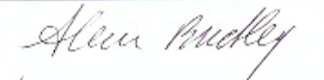 Alan Buckley